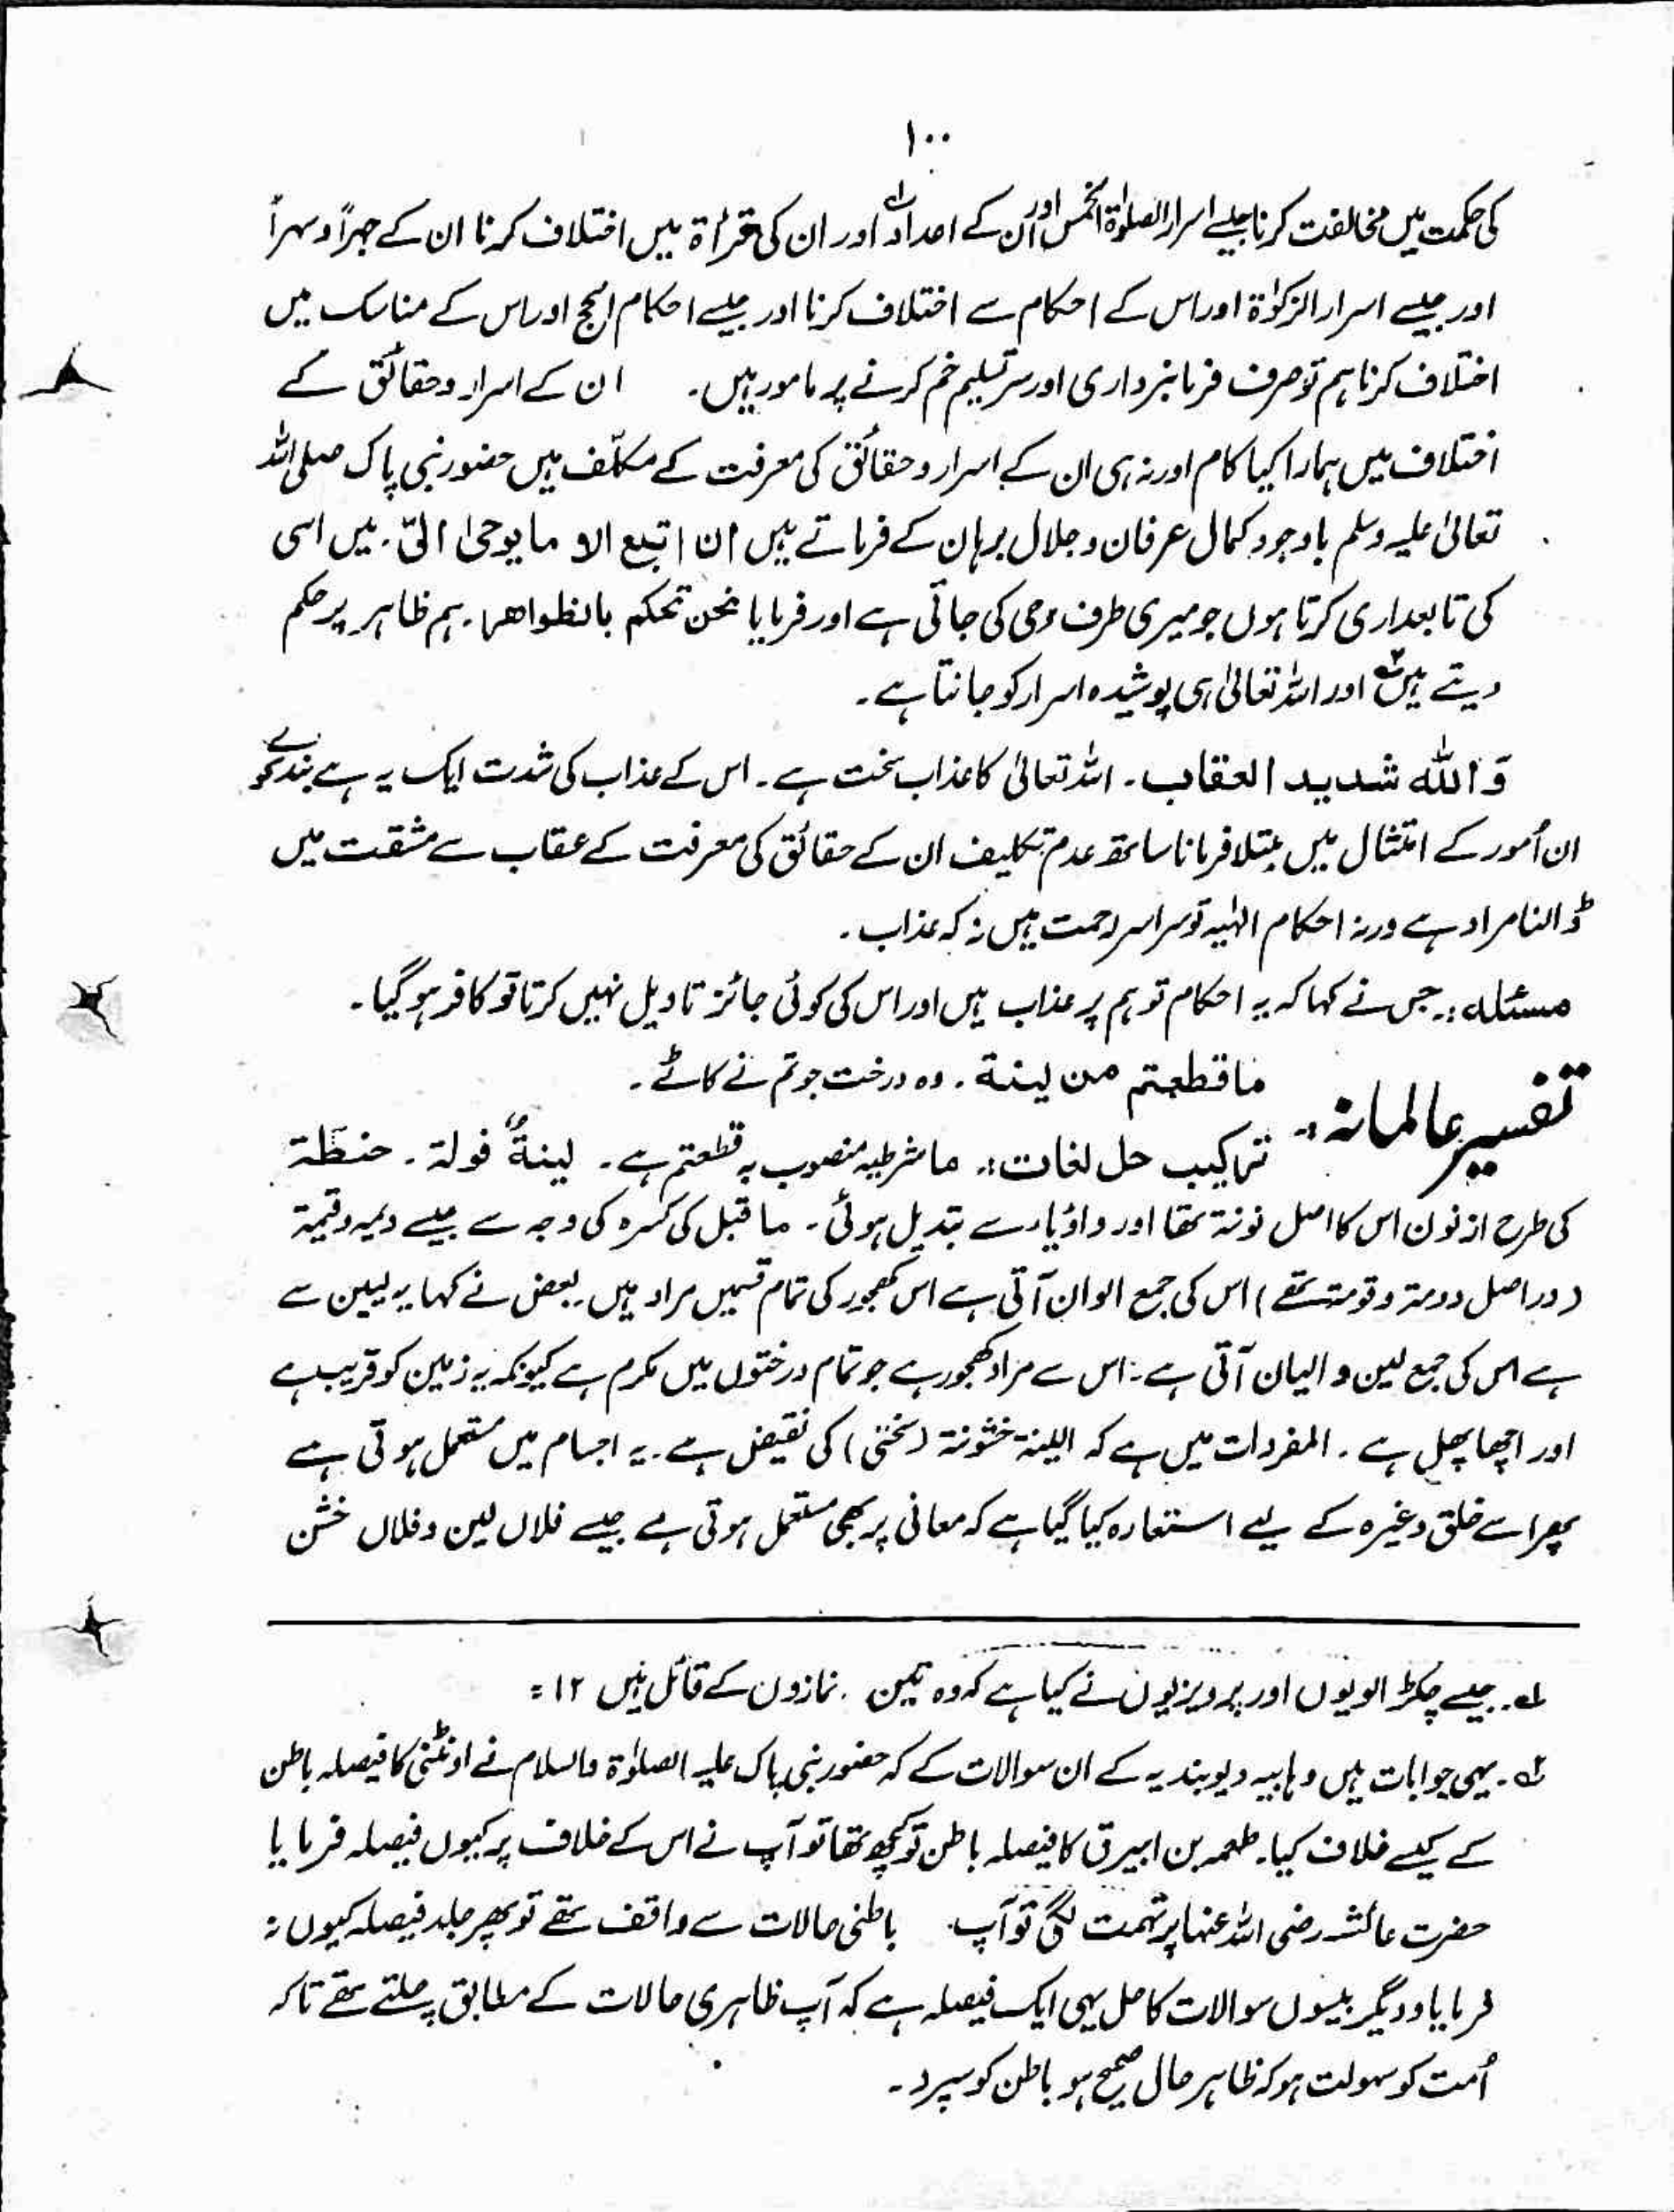 ۱۰۰
کی حکمت میں مخالفت کرنا جیسے اسرار الصلوٰۃ الخمس اور ان کے اعداد اور ان کی قرأۃ میں اختلاف کرنا ان کے جہراً و سراً
اور جیسے اسرار الزکوٰۃ اور اس کے احکام سے اختلاف کرنا اور جیسے احکام الحج اور اس کے مناسک میں
اختلاف کرنا ہم تو صرف فرمانبرداری اور سرتسلیم خم کرنے پر مامور ہیں۔ ان کے اسرار و حقائق کے
اختلاف میں ہمارا کیا کام اور نہ ہی ان کے اسرار و حقائق کی معرفت کے مکلّف ہیں حضور نبی پاک صلی اللہ
تعالیٰ علیہ وسلم باوجود کمال عرفان و جلال برہان کے فرماتے ہیں ان اتبع الا ما یوحیٰ الیّ۔ میں اسی
کی تابعداری کرتا ہوں جو میری طرف وحی کی جاتی ہے اور فرمایا نحن نحکم بالظواھر۔ ہم ظاہر پر حکم
دیتے ہیں۲؎ اور اللہ تعالیٰ ہی پوشیدہ اسرار کو جانتا ہے۔
وَاللّٰہ شدید العقاب۔ اللہ تعالیٰ کا عذاب سخت ہے۔ اس کے عذاب کی شدت ایک یہ ہے بندے کو
ان اُمور کے امتثال میں مبتلا فرمانا ساتھ عدم تکلیف ان کے حقائق کی معرفت کے عقاب سے مشقت میں
ڈالنا مراد ہے ورنہ احکام الہٰیہ تو سراسر رحمت ہیں نہ کہ عذاب۔
مسئلہ:۔ جس نے کہا کہ یہ احکام تو ہم پر عذاب ہیں اور اس کی کوئی جائز تاویل نہیں کرتا تو کافر ہو گیا۔
تفسیر عالمانہ:۔ ماقطعتم من لینۃ۔ وہ درخت جو تم نے کاٹے۔
ترکیب حل لغات:۔ ما شرطیہ منصوب بہ قطعتم ہے۔ لینۃٌ فولۃ۔ حنطۃ
کی طرح از نون اس کا اصل نونۃ تھا اور واؤ یاء سے تبدیل ہوئی۔ ما قبل کی کسرہ کی وجہ سے جیسے دیمہ و قیمۃ
(دراصل دومۃ و قومۃ تھے) اس کی جمع الوان آتی ہے اس کھجور کی تمام قسمیں مراد ہیں۔ بعض نے کہا یہ لیین سے
ہے اس کی جمع لین و الیان آتی ہے۔ اس سے مراد کھجور ہے جو تمام درختوں میں مکرم ہے کیونکہ یہ زمین کو قریب ہے
اور اچھا پھل ہے۔ المفردات میں ہے کہ اللینۃ خشونۃ (سختی) کی نقیض ہے۔ یہ اجسام میں مستعمل ہوتی ہے
پھر اسے خلق وغیرہ کے لیے استعارہ کیا گیا ہے کہ معانی پر بھی مستعمل ہوتی ہے جیسے فلاں لین و فلاں خشن
۱؎۔ جیسے چکڑالویوں اور پرویزیوں نے کیا ہے کہ وہ تین نمازوں کے قائل ہیں ۱۲=
۲؎۔ یہی جوابات ہیں وہابیہ دیوبندیہ کے ان سوالات کے کہ حضور نبی پاک علیہ الصلوٰۃ والسلام نے اونٹنی کا فیصلہ باطن
کے کیسے خلاف کیا۔ طعمہ بن ابیرق کا فیصلہ باطن تو کچھ تھا تو آپ نے اس کے خلاف پر کیوں فیصلہ فرمایا
حضرت عائشہ رضی اللہ عنہا پر تہمت لگی تو آپ باطنی حالات سے واقف تھے تو پھر جلد فیصلہ کیوں نہ
فرمایا و دیگر بیسوں سوالات کا حل یہی ایک فیصلہ ہے کہ آپ ظاہری حالات کے مطابق چلتے تھے تاکہ
اُمت کو سہولت ہو کہ ظاہر حال صحیح ہو باطن کو سپرد۔